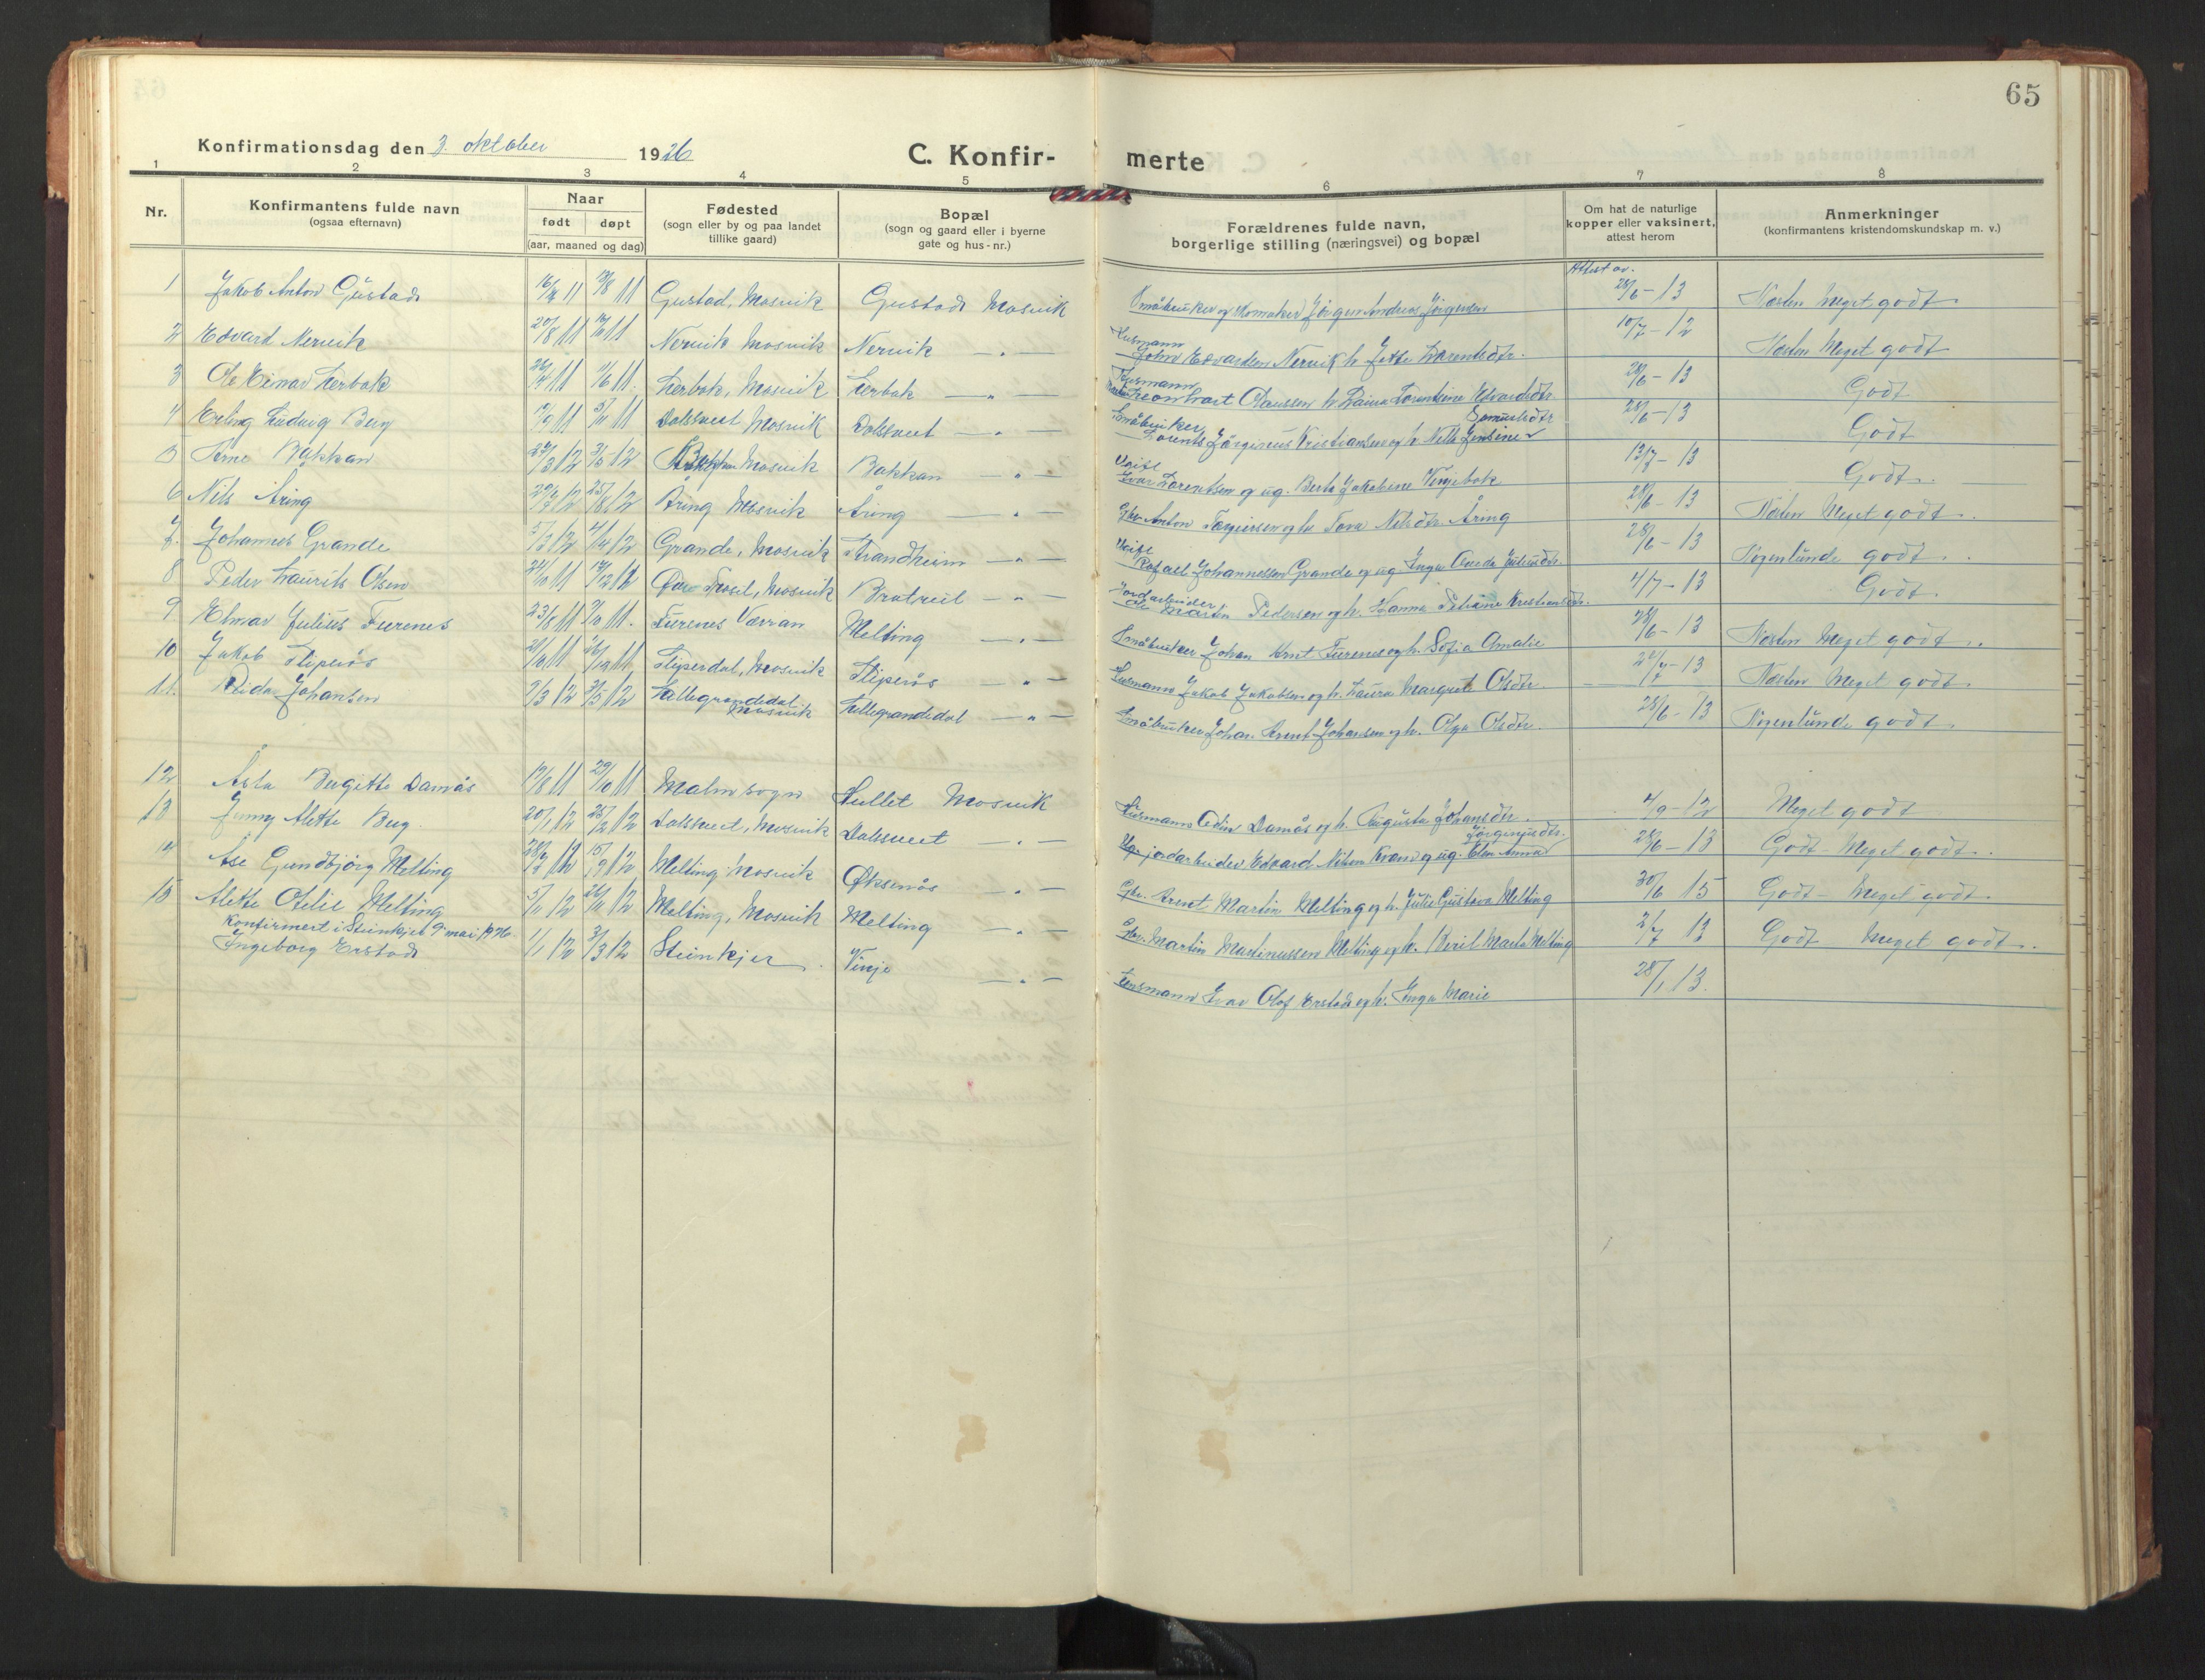 65
Konfirmationsdag den 3. oktober 1926
C. Konfir-
merte
1 2 3 4 5 6 7 8
Nr.
Konfirmantens fulde navn
(ogsaa efternavn)
Naar
født døpt
(aar, maaned og dag)
Fødested
(sogn eller by og paa landet
tillike gaard)
Bopæl
(sogn og gaard eller i byerne
gate og hus-nr.)
Forældrenes fulde navn,
borgerlige stilling (næringsvei) og bopæl
Om hat de naturlige
kopper eller vaksinert,
attest herom
Anmerkninger
(konfirmantens kristendomskundskap m. v.)
Attest av.
1 Jakob Anton Gustad 11 11 Gustad, Mosvik Gustad Mosvik Småbruker og Jørgen Andreas Jørgensen 28/6-13 Næsten Meget godt
2 Edvard Nervik 20/8 11 11 Nervik Mosvik Nervik — " — Husmann John Edvardsen Nervik h. Jette Larentsdtr. 10/7-12 Næsten Meget godt
3 Ole Einar Lerbak 11 11/6 11. Lerbak, Mosvik Lerbak — " — Husmann Olaussen h. Laurentine Edvardsdtr. 28/6-13 Godt
4 Erling Ludvig Berg 11 11 Dalsveet Mosvik Dalsveet — " — Småbruker Lorents Jørginus Kristiansen og h. Jensine Samuelsdtr 28/6-13 Godt
5 Arne Bakkan 12 3/5 12 Bakkan Mosvik Bakkan — " — Uægte Ivar Lorentsen og ug. Berta Jakobine Vinjebak 13/7-13 Godt.
6 Nils Åring 12 25/8 12 Åring Mosvik Åring — " — Gbr. Anton og h. Nilsdtr. Åring 28/6-13 Næsten Meget godt.
7. Johannes Grande 5/3 12 4/4 12 Grande, Mosvik Strandheim — " — Uægte Rafael Johannessen Grande og ug. Inga Juliusdtr. 28/6-13 Nogenlunde godt.
8 Peder Laurits Olsen 24/10 11 Mosvik Bratreit — " — Jordarbeider Ole Martin Pedersen og h. Hanna Petrine Kristiansdtr. 4/7-13 Godt.
9 Elmar Julius Furenes 23/8 11 11. Furenes Værran Melting — " — Småbruker Johan Arnt Furenes og h. Sofia Amalie 28/6-13 Næsten Meget godt.
10 Jakob Stiperås 11 11 Stiperdal, Mosvik Stiperås — " — Husmann Jakob Jakobsen og h. Laura Margrete Olsdtr. -13 Næsten Meget godt.
11. Reidar Johansen 9/3 12 12 Lillegrandedal Mosvik Lillegrandedal — " — Småbruker Johan Arent Johansen og h. Olga Olsdtr. 28/6-13 Nogenlunde godt.
12 Asta Birgitte Damås 11 29/10 11 Malm sogn Mosvik Husmann Odin Damås og h. Augusta Johansdtr. 4/9-12 Meget godt
13 Jenny Alette Berg. 20/1 12 25/2 12 Dalsveet, Mosvik Dalsveet — " — jordarbeider Edvard Nilsen og ug. Elen Anna Jørginusdtr. 28/6-13 Godt - Meget godt.
14 Åse Gundbjørg Melting 12 15/9 12 Melting Mosvik Øksnås — " — Gbr. Arent Martin Melting og h. Julie Gustava Melting 30/6 15 Godt - Meget godt.
15 Alette Otelie Melting 12 12 Melting, Mosvik Melting — " — Gbr. Martin Martinussen Melting og h. Marta Melting 2/7 13 Godt Meget godt.
Konfirmert i Steinkjer 9 mai 1926
Ingeborg Erstad 1/1 12 3/3 12 Steinkjer Vinje — " — Husmann Ivar Olaf Erstad og h. Inga Marie 28/1 13.